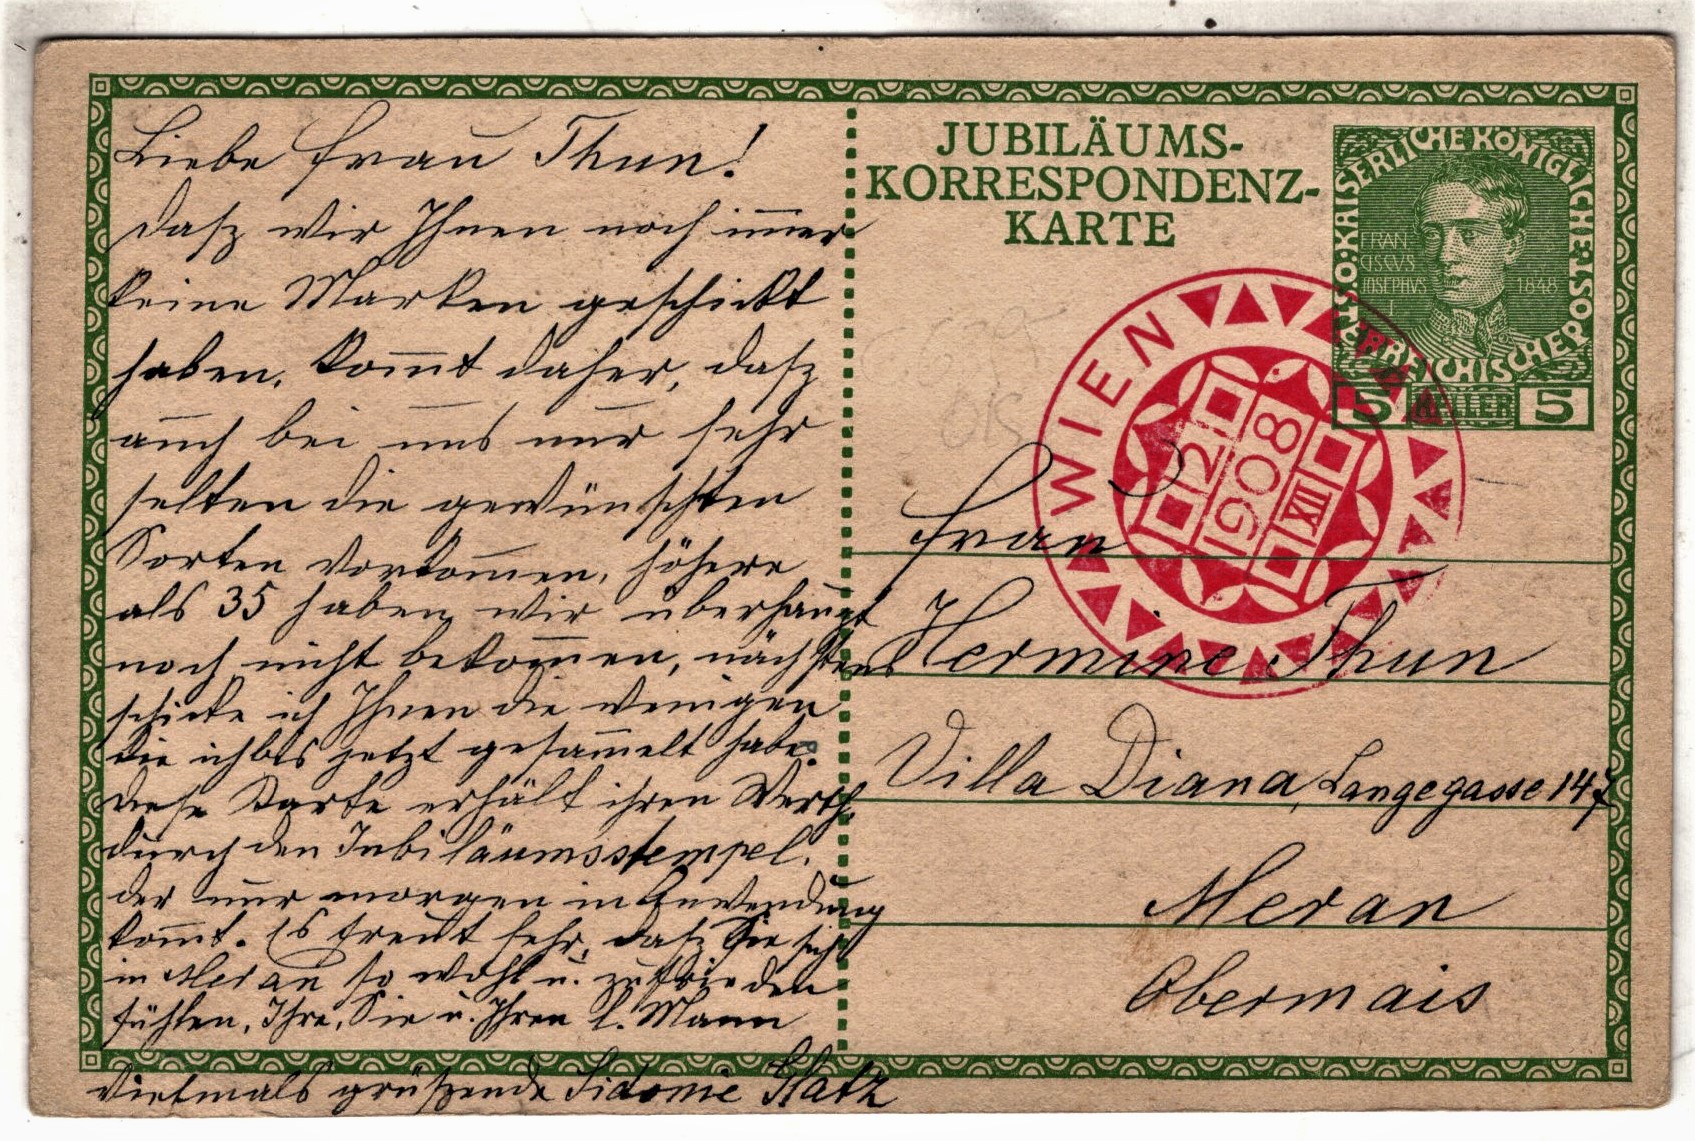 Liebe Frau Thun!
Dasz wir Ihnen noch im̄er
keine Marken geschickt
haben, kom̄t daher, dasz
auch bei uns nur sehr
selten die gewünschten
Sorten vorkom̄en, höhere
als 35 haben wir überhaupt
noch nicht bekom̄en, nächstens
schicke ich Ihnen die wenigen
die ich bis jetzt gesam̄elt habe.
Diese Karte erhält ihren Werth
durch den Jubiläumsstempel,
der nur morgen in Anwendung
kom̄t. Es freut sehr, dasz Sie sich
in Meran so wohl u. zufrieden
fühlen, Ihre, Sie u. Ihren l. Mann
vielmals grüßende Sidonie Glatz
JUBILÄUMS-
KORRESPONDENZ-
KARTE
KAISERLICHE KÖNIGLICHE ÖSTERREICHISCHE POST
FRAN
CISCVS
JOSEPHVS
I
1848
5 HELLER 5
WIEN
2
1908
XII
Frau
Hermine Thun
Villa Diana, Langegasse 147
Meran
Obermais